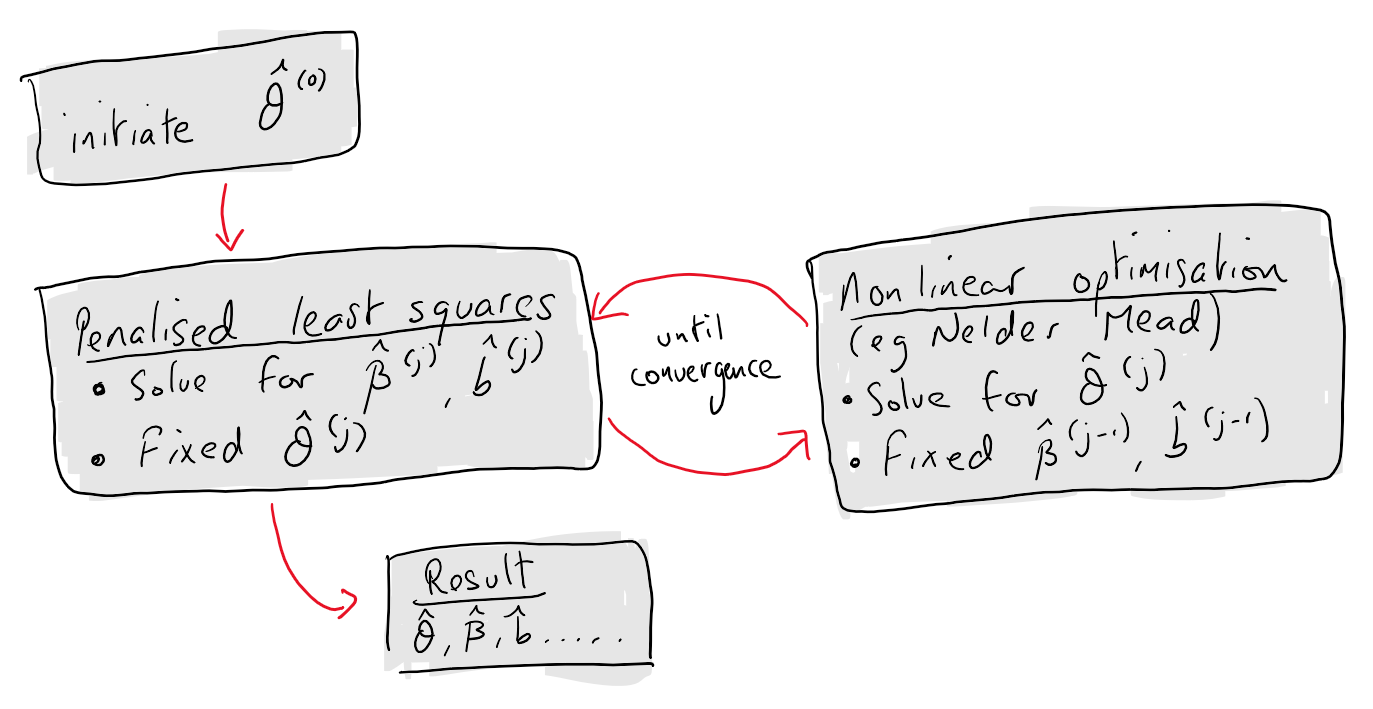 initiate θ̂⁽⁰⁾
Penalised least squares
• Solve for β̂⁽ʲ⁾, b̂⁽ʲ⁾
• Fixed θ̂⁽ʲ⁾
until
convergence
Nonlinear optimisation
(eg Nelder Mead)
• Solve for θ̂⁽ʲ⁾
• Fixed β̂⁽ʲ⁻¹⁾, b̂⁽ʲ⁻¹⁾
Result
θ̂, β̂, b̂......